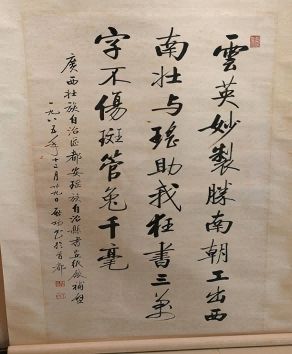 雲英妙製勝南朝工出西
南壮与瑶助我狂書三萬
字不傷斑管兔千毫
廣西壮族自治區都安瑶族自治縣書畫紙廠補壁
一九八五年十二月廿九日啟功書於首都